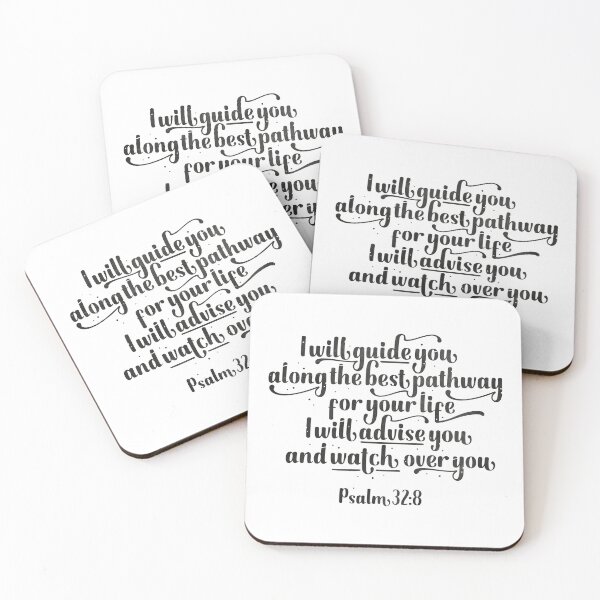 I will guide you
along the best pathway
for your life
you
you
I will guide you
along the best pathway
for your life
I will advise you
and watch over you
I will guide you
along the best pathway
for your life
I will advise you
and watch over you
Psalm 32
I will guide you
along the best pathway
for your life
I will advise you
and watch over you
Psalm 32:8